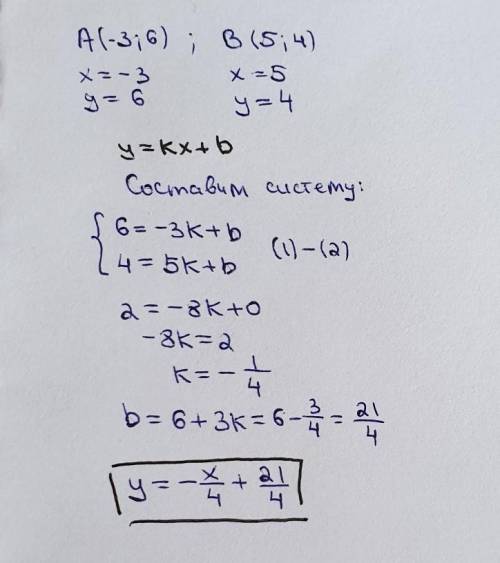 A(-3;6) ; B(5;4)
x=-3 x=5
y=6 y=4
y=kx+b
Составим систему:
{ 6=-3k+b
4=5k+b (1)-(2)
2=-8k+0
-8k=2
k=-1/4
b=6+3k=6-3/4=21/4
y=-x/4+21/4